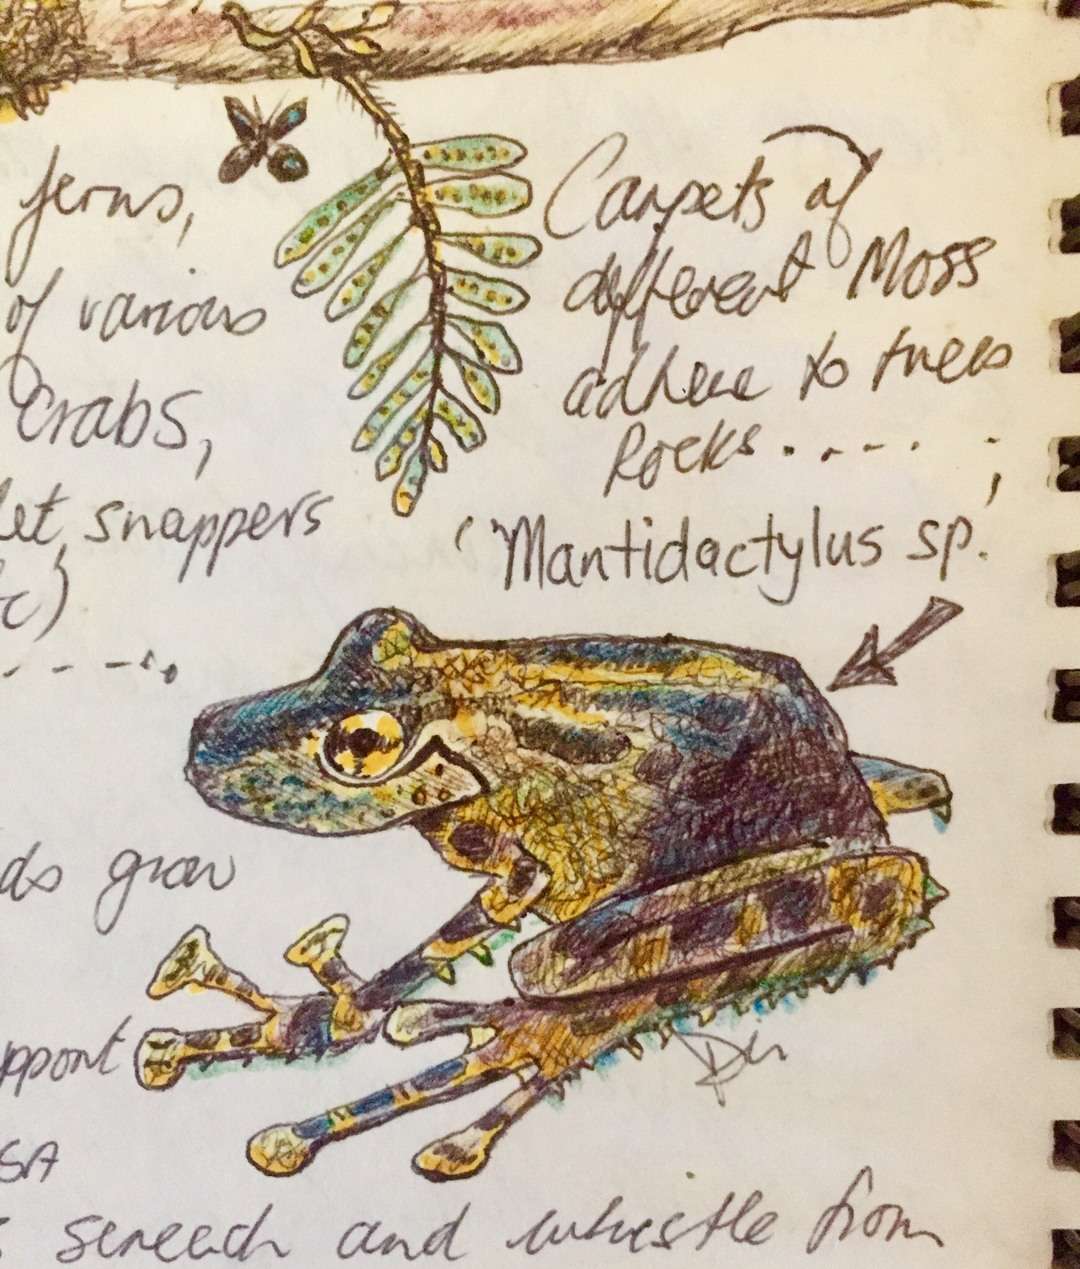 ferns,
of various
Crabs,
let, snappers
tc)
- - - - . .
ds grow
pport
SA
screech and whistle from
Carpets of
different Moss
adhere to trees
Rocks . . - - .
'Mantidactylus sp.'